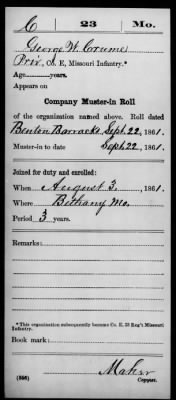 C | 23 | Mo.
George W. Crume
Priv, Co. E, Missouri Infantry.*
Age years.
Appears on
Company Muster-in Roll
of the organization named above. Roll dated
Benton Barracks, Sept. 22, 1861.
Muster-in to date Sept 22, 1861.
Joined for duty and enrolled:
When August 3, 1861.
Where Bethany Mo.
Period 3 years.
Remarks:
*This organization subsequently became Co. E, 23 Reg't Missouri
Infantry.
Book mark:
(356)
Copyist.